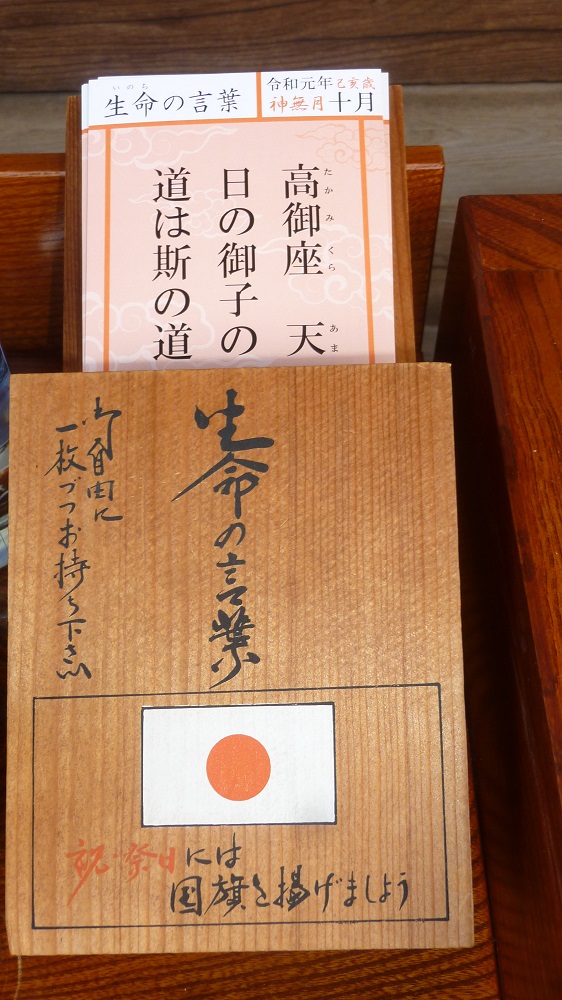 生命の言葉
いのち
令和元年己亥歳
神無月十月
高御座 天
たかみくら あま
日の御子の
道は斯の道
生命の言葉
御自由に
一枚づつお持ち下さい
祝・祭日には
国旗を揚げましょう